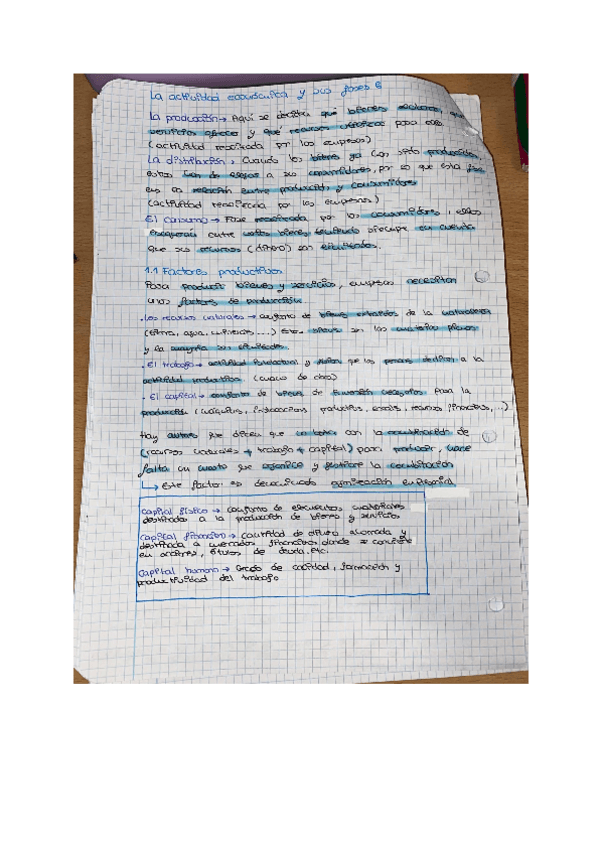 La actividad económica y sus fases
La producción → Aquí se decide qué bienes elaborar, que
servicios ofrece y qué recursos utilizar para ello
(actividad realizada por las empresas)
La distribución → Cuando los bienes ya han sido producidos,
estos han de llegar a sus consumidores, por lo que esta fase
es la relación entre productores y consumidores
(actividad realizada por las empresas)
El consumo → Fase realizada por los consumidores, ellos
escogerán entre estos bienes teniendo siempre en cuenta
que sus recursos (dinero) son limitados.
1.1 Factores productivos
Para producir bienes y servicios, empresas necesitan
unos factores de producción
. Los recursos naturales → conjunto de bienes extraídos de la naturaleza
(tierra, agua, ...) Estos bienes son las materias primas
y la mayoría son limitados.
. El trabajo → actividad intelectual y física que las personas dedican a la
actividad productiva (mano de obra)
. El capital → conjunto de bienes de para la
producción (maquinaria, instalaciones productivas, recursos financieros, ...)
Hay autores que dicen que no basta con la combinación de
(recursos naturales + trabajo + capital) para producir, hace
falta un cuarto que organice y gestione la combinación
↳ Este factor es denominado organización empresarial
Capital físico → conjunto de elementos materiales
destinados a la producción de bienes y servicios
Capital financiero → cantidad de dinero ahorrada y
destinada a mercados financieros donde se convierte
en acciones, títulos de deuda, etc.
Capital humano → Grado de capacidad, formación y
productividad del trabajo